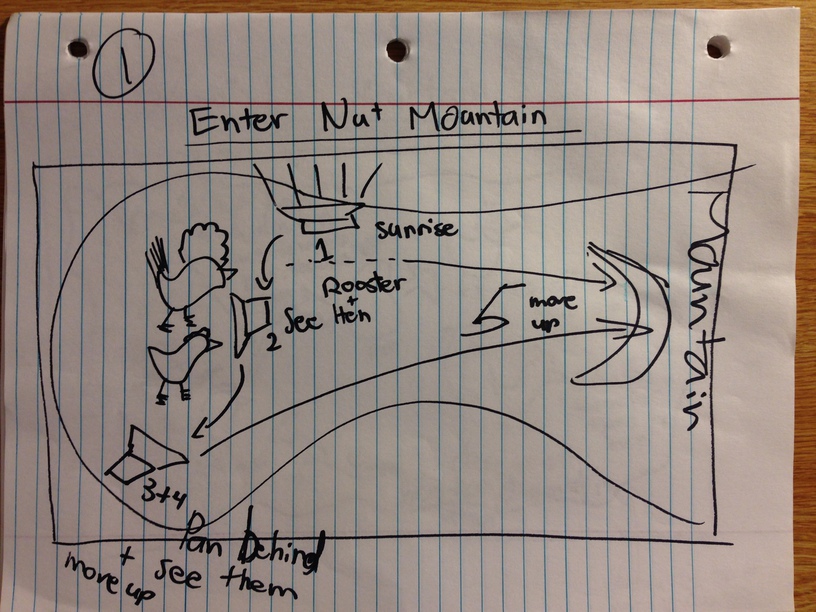 1
Enter Nut Mountain
sunrise
1
Rooster
+
See Hen
2
5 move
up
Mountain
3+4
Pan behind
+ see them
move up